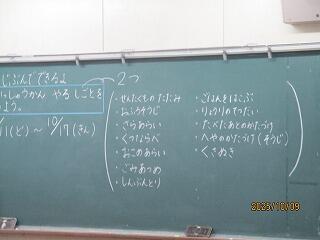 じぶんでできるよ
いっしゅうかん やる しごとを
よう。
2つ
11(ど)～10/17(きん)
・せんたくものたたみ
・おふろそうじ
・さらあらい
・くつならべ
・おこめあらい
・ごみあつめ
・しんぶんとり
・ごはんをはこぶ
・りょうりのてつだい
・たべたあとのかたづけ
・へやのかたづけ(そうじ)
・くさぬき
2025/10/09